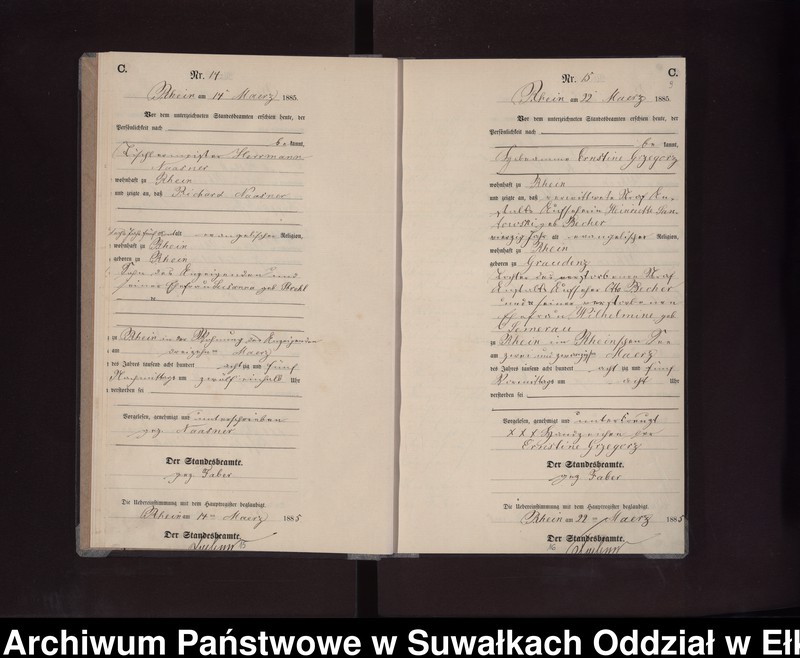 C.
Nr. 14
Rhein am 14 Maerz 1885.
Vor dem unterzeichneten Standesbeamten erschien heute, der
Persönlichkeit nach
be kannt,
Tischlermeister Herrmann
Naasner
wohnhaft zu Rhein
und zeigte an, daß Richard Naasner
evangelischer Religion,
wohnhaft zu Rhein
geboren zu Rhein
Sohn des Anzeigenden und
seiner Ehefrau Susanna geb
zu Rhein in der Wohnung des Anzeigenden
am dreizehn Maerz
des Jahres tausend acht hundert achtzig und fünf
Nachmittags um zwölf einhalb Uhr
verstorben sei
Vorgelesen, genehmigt und unterschrieben
gez Naasner
Der Standesbeamte.
gez Faber
Die Uebereinstimmung mit dem Hauptregister beglaubigt.
Rhein am 14 Maerz 1885
Der Standesbeamte.
C.
Nr. 15
Rhein am 22 Maerz 1885.
Vor dem unterzeichneten Standesbeamten erschien heute, der
Persönlichkeit nach
be kannt,
Hebeamme Ernstine Grzegorz
wohnhaft zu Rhein
und zeigte an, daß verwittwete Straf An-
stalts Aufseherin Heinriette
geb Becher
vierzig Jahr alt evangelischer Religion,
wohnhaft zu Rhein
geboren zu Graudenz
Tochter des verstorbenen Straf
Anstalts Aufseher Otto Becher
und seiner verstorbenen
Ehefrau Wilhelmine geb
Somerau
zu Rhein im Rheinschen See
am zwei und zwanzigsten Maerz
des Jahres tausend acht hundert acht zig und fünf
Vormittags um acht Uhr
verstorben sei
Vorgelesen, genehmigt und unterkreuzt
XXX Handzeichen der
Ernstine Grzegorz
Der Standesbeamte.
gez Faber
Die Uebereinstimmung mit dem Hauptregister beglaubigt.
Rhein am 22 Maerz 1885
Der Standesbeamte.
Archiwum Państwowe w Suwałkach Oddział w Ełk